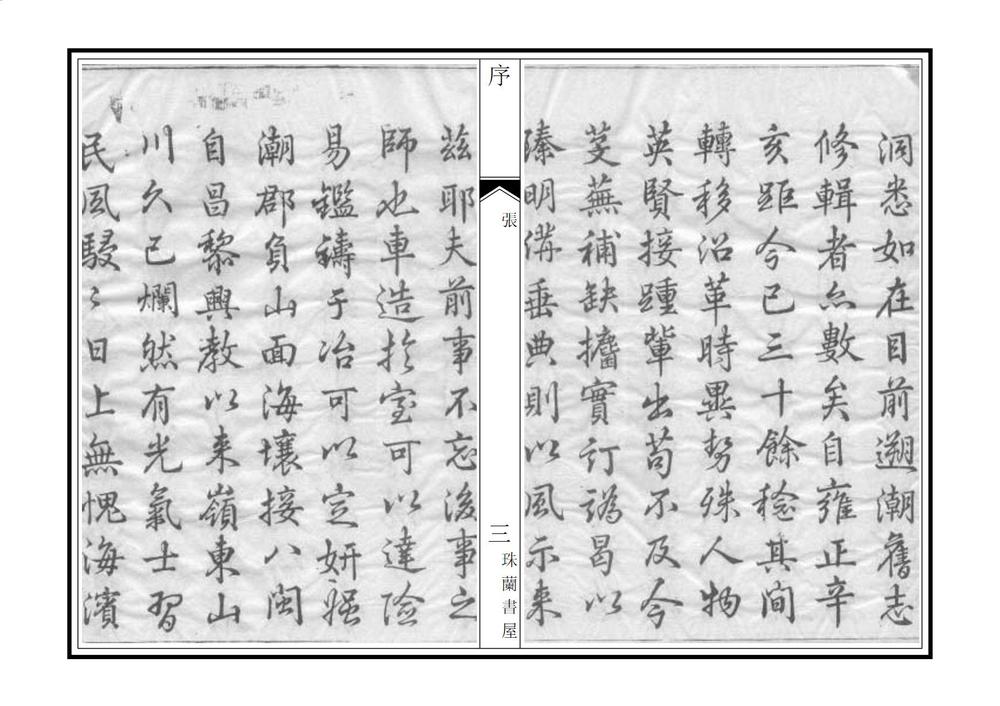 洞悉如在目前遡潮舊志
修輯者亦數矣自雍正辛
亥距今已三十餘稔其間
轉移沿革時異勢殊人物
英賢接踵輩出茍不及今
芟蕪補缺擂實訂譌曷以
臻明備垂典則以風示来
序
張
三
珠蘭書屋
茲耶夫前事不忘後事之
師也車造扵室可以達險
易鑑鑄于冶可以定妍媸
潮郡負山面海壤接八閩
自昌黎興教以来嶺東山
川久已爛然有光氣士習
民風駸〻日上無愧海濱